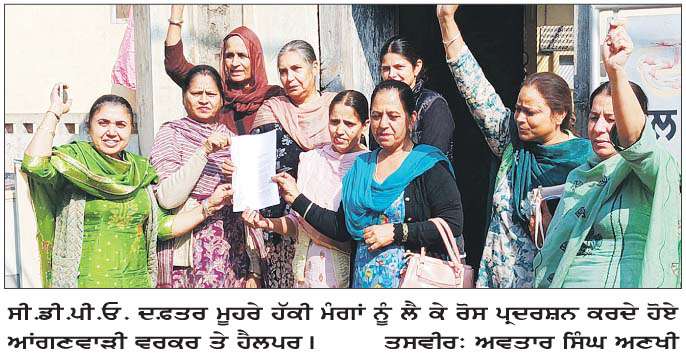 ਲ
ਸੀ.ਡੀ.ਪੀ.ਓ. ਦਫ਼ਤਰ ਮੂਹਰੇ ਹੱਕੀ ਮੰਗਾਂ ਨੂੰ ਲੈ ਕੇ ਰੋਸ ਪ੍ਰਦਰਸ਼ਨ ਕਰਦੇ ਹੋਏ
ਆਂਗਣਵਾੜੀ ਵਰਕਰ ਤੇ ਹੈਲਪਰ। ਤਸਵੀਰ: ਅਵਤਾਰ ਸਿੰਘ ਅਣਖੀ